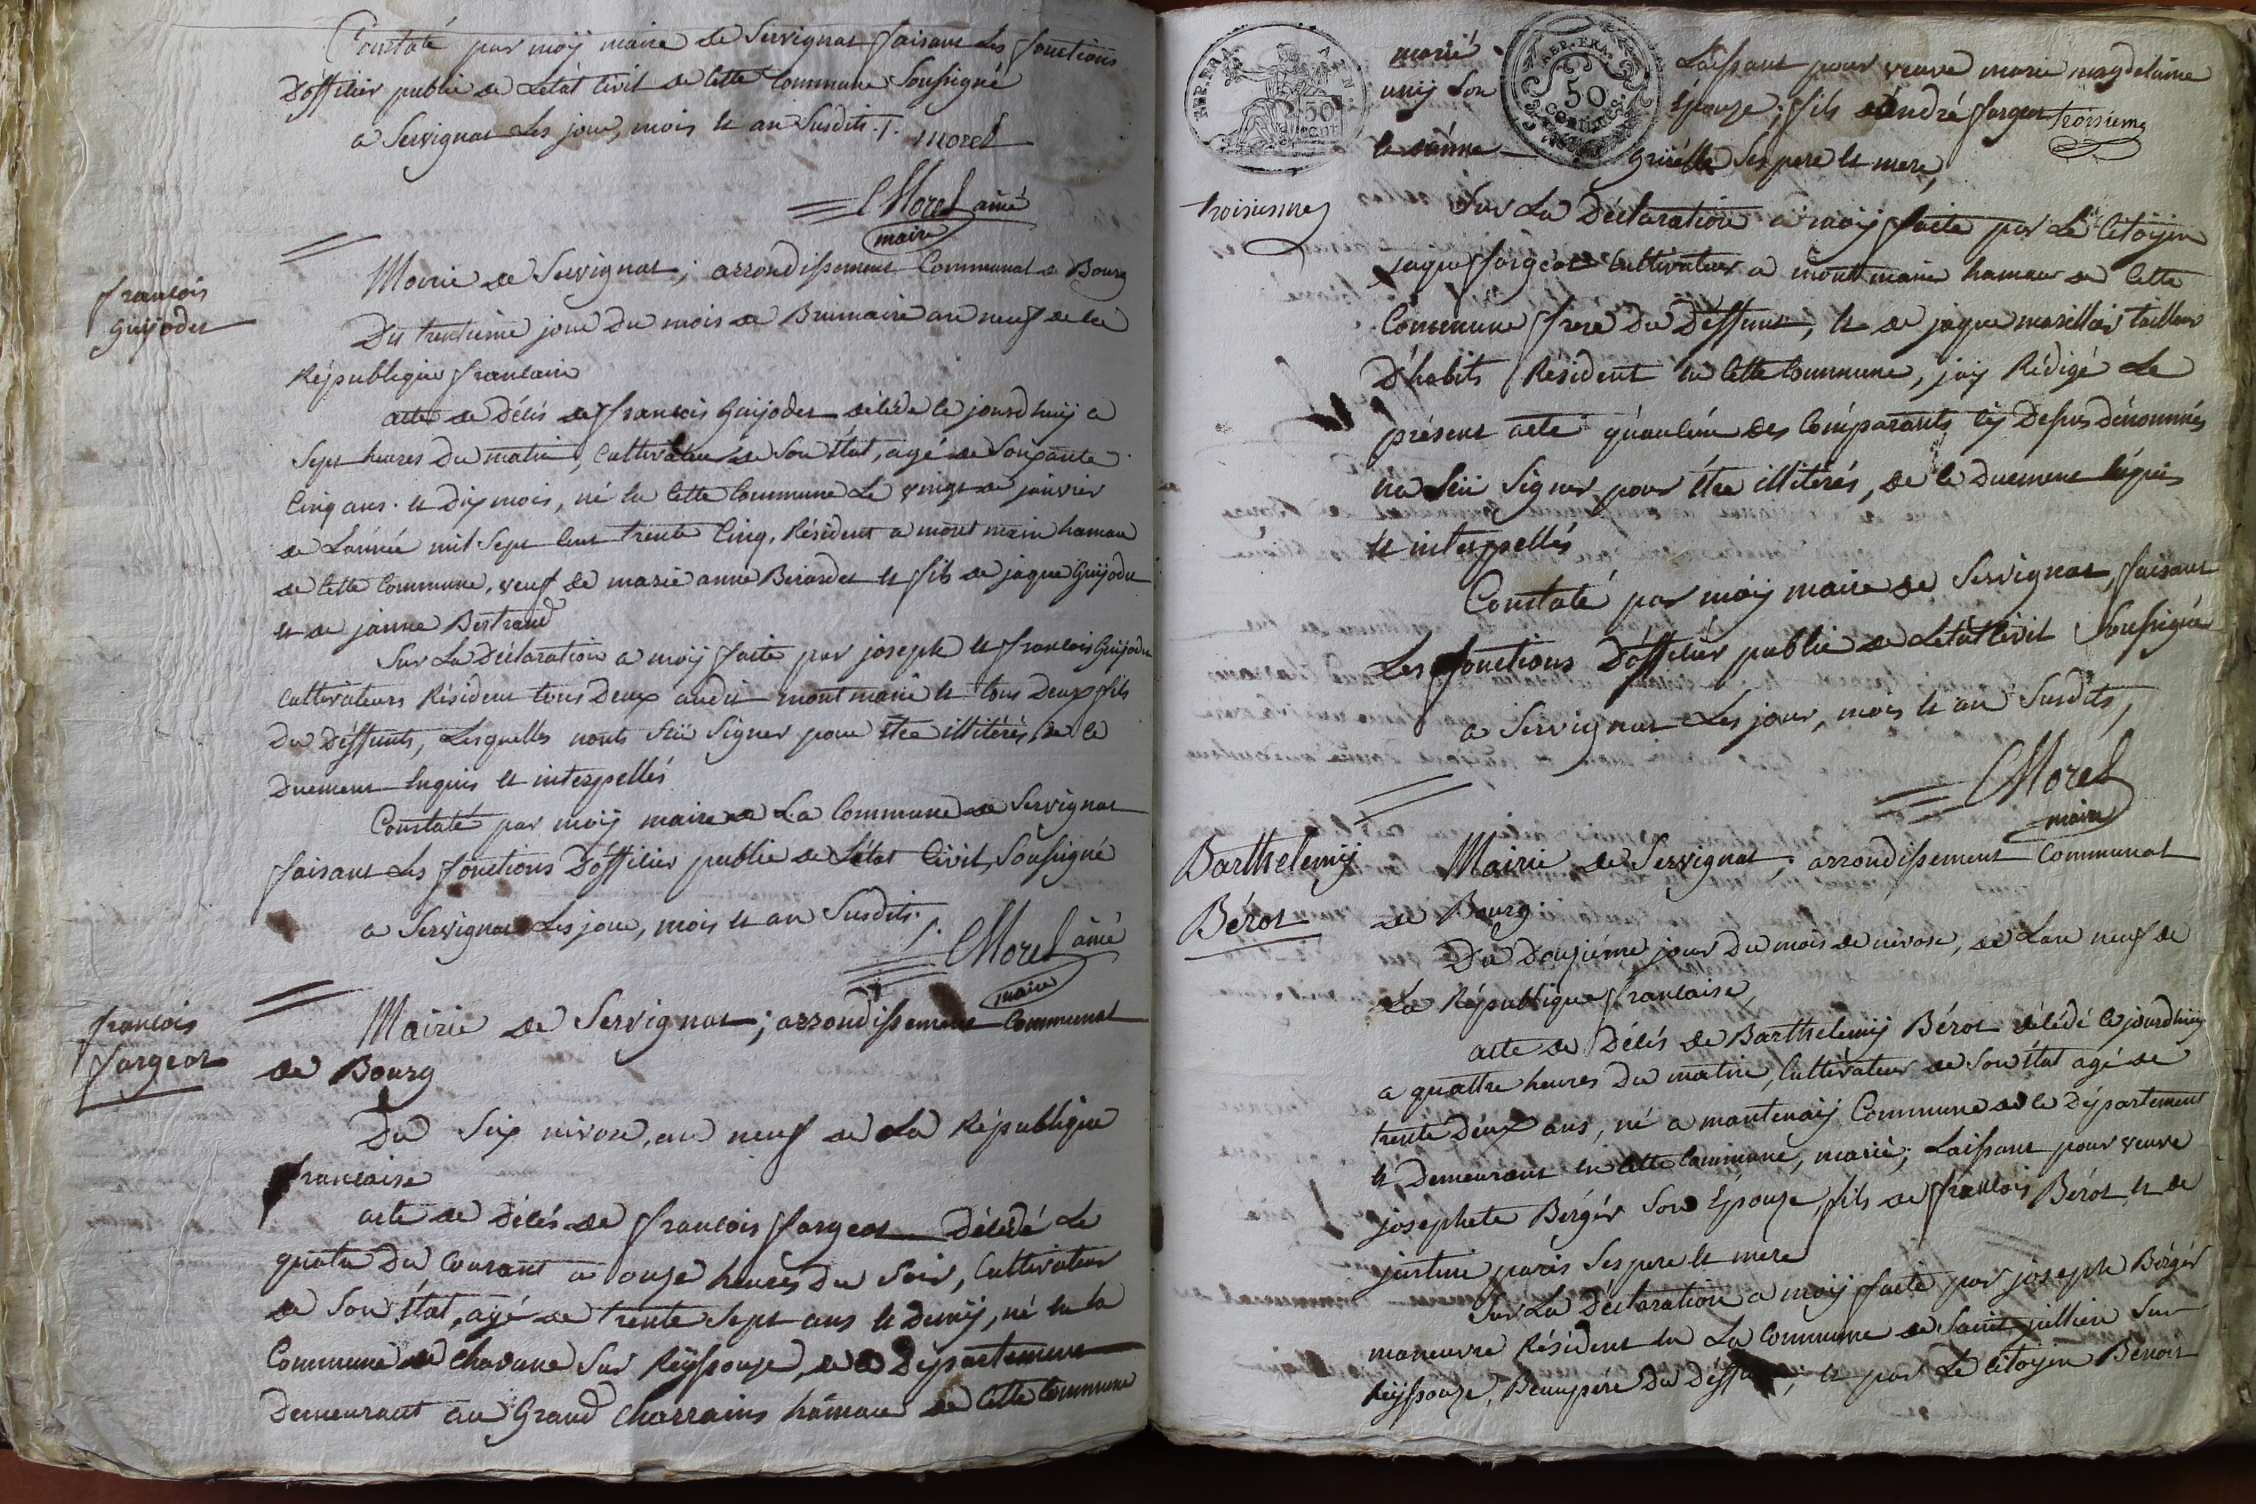 Constaté par moij maire de Servignat faisant Les fonctions
D'officier public de Létat Civil de Cette Commune Soussigné
a Servignat Les jour, mois et an Susdits ./. morel
CMorel ainé
maire
francois
Guijodet
Mairie de Servignat ; arrondissement Communal de Bourg
Du trentieme jour Du mois de Brumaire an neuf de la
République francaise
acte de Décés de francois Guijodet décédé ce jourdhuij a
Sept heures Du matin, Cultivateur de Son état, agé de Soixante
Cinq ans . et dix mois, né en Cette Commune Le vingt de janvier
de Lannée mil Sept Cent trente Cinq, Résident a mont main hamau
de Cette Commune, veuf de marie anne Berardet et fils de jaque Guijodet
et de janne Bertrand
Sur La Déclaration a moij faite par joseph et francois Guijodet
Cultivateurs Résident tous Deux audit mont main et tous Deux fils
Du Déffunts, Lesquelles nonts Sçu Signer pour etre illitérés, de ce
Duement Enquis et interpellés
Constaté par moij maire de La Commune de Servignat
faisant Les fonctions D'officier public de Létat Civil, Soussigné
a Servignat Les jour, mois et an Susdits ./.
CMorel ainé
maire
francois
fargeot
Mairie de Servignat ; arrondissement Communal
de Bourg
Du Six nivose, an neuf de La République
francaise
acte de Décés de francois fargeot Décédé Le
quatre Du Courant a onze heures Du Soir, Cultivateur
de Son État, agé de trente Sept ans et demij, né en la
Commune de Chavane Sur Reijssouze, de ce Département
Demeurant au Grand Charrains hamau de Cette Commune
REP. FRA.
50
CENT
marié
unij Son
la même
REP. FRA.
50
CENTIMES
Laissant pour veuve marie magdelaine
Épouze ; fils dandré fargeot troisieme
Gruelle Ses pere et mere,
troisiesme
Sur La Déclaration a moij faite par Le Citoijen
jaque fargeot Cultivateur a mont main hamau de Cette
Commune frere Du Déffunt, et de jaque marillier tailleur
D'habits Résident en Cette Commune, jaij Rédigé Le
présent acte quaucun des Comparants Cij Dessus dénommés
na Sçu Signer pour étre illitérés, de Ce Duement Enquis
et interpellés
Constaté par moij maire de Servignat, faisant
Les fonctions D'officier public de Létat Civil Soussigné
a Servignat Les jour, mois et an Susdits,
CMorel
maire
Barthelemij
Bérot
Mairie de Servignat ; arrondissement Communal
de Bourg
Du Douzieme jour Du mois de nivose, de Lan neuf de
La République francaise,
acte de Décés de Barthelemij Bérot décédé cejourdhuij
a quattre heures Du matin, Cultivateur de Son état agé de
trente Deux ans, né a mantenaij Commune de ce Département
et Demeurant en Cette Commune, marié, Laissant pour veuve
josephete Bergér Son Épouze, fils de francois Bérot et de
justine paris Ses pere et mere
Sur La Déclaration a moij faite par joseph Bergér
maneuvre Résident en La Commune de Saint jullien Sur
Reijssouze, Beaupére du Déffunt, et par Le Citoijen Benoit